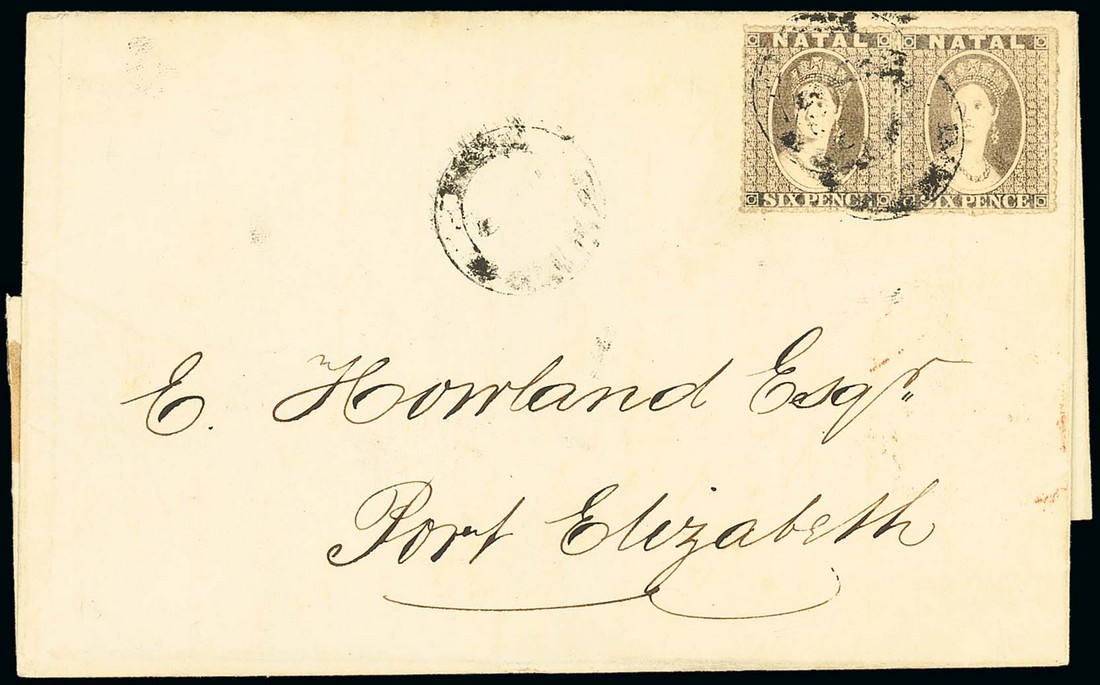 NATAL NATAL
SIX PENCE SIX PENCE
E. Howland Esqr.
Port Elizabeth